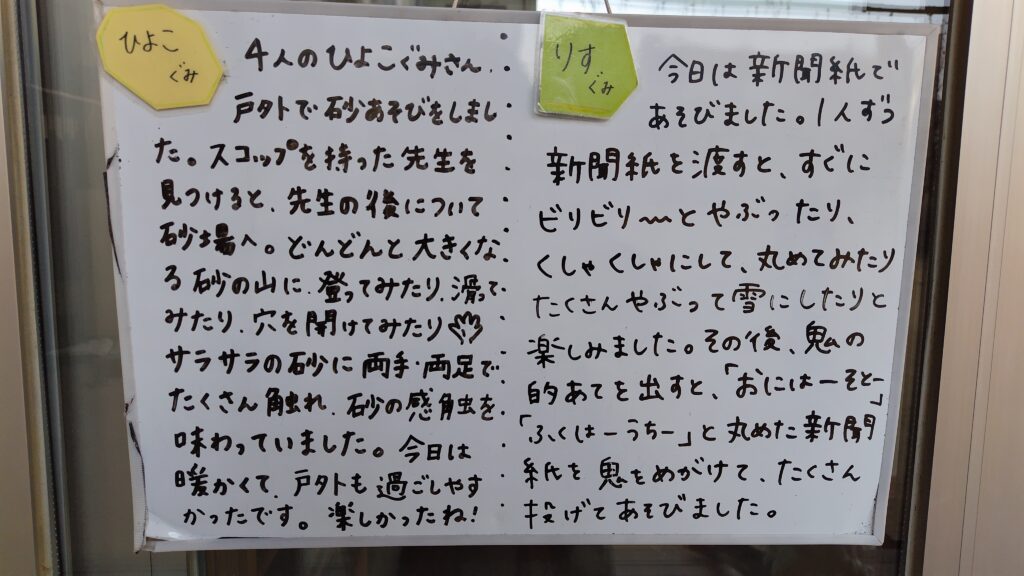 ひよこ
ぐみ
4人のひよこぐみさん、
戸外で砂あそびをしまし
た。スコップを持った先生を
見つけると、先生の後について
砂場へ。どんどんと大きくな
る砂の山に、登ってみたり、滑って
みたり、穴を開けてみたり
サラサラの砂に両手・両足で
たくさん触れ、砂の感触を
味わっていました。今日は
暖かくて、戸外も過ごしやす
かったです。楽しかったね!
りす
ぐみ
今日は新聞紙で
あそびました。1人ずつ
新聞紙を渡すと、すぐに
ビリビリ〜〜とやぶったり、
くしゃくしゃにして、丸めてみたり
たくさんやぶって雪にしたりと
楽しみました。その後、鬼の
的あてを出すと、「おにはーそとー」
「ふくはーうちー」と丸めた新聞
紙を鬼をめがけて、たくさん
投げてあそびました。